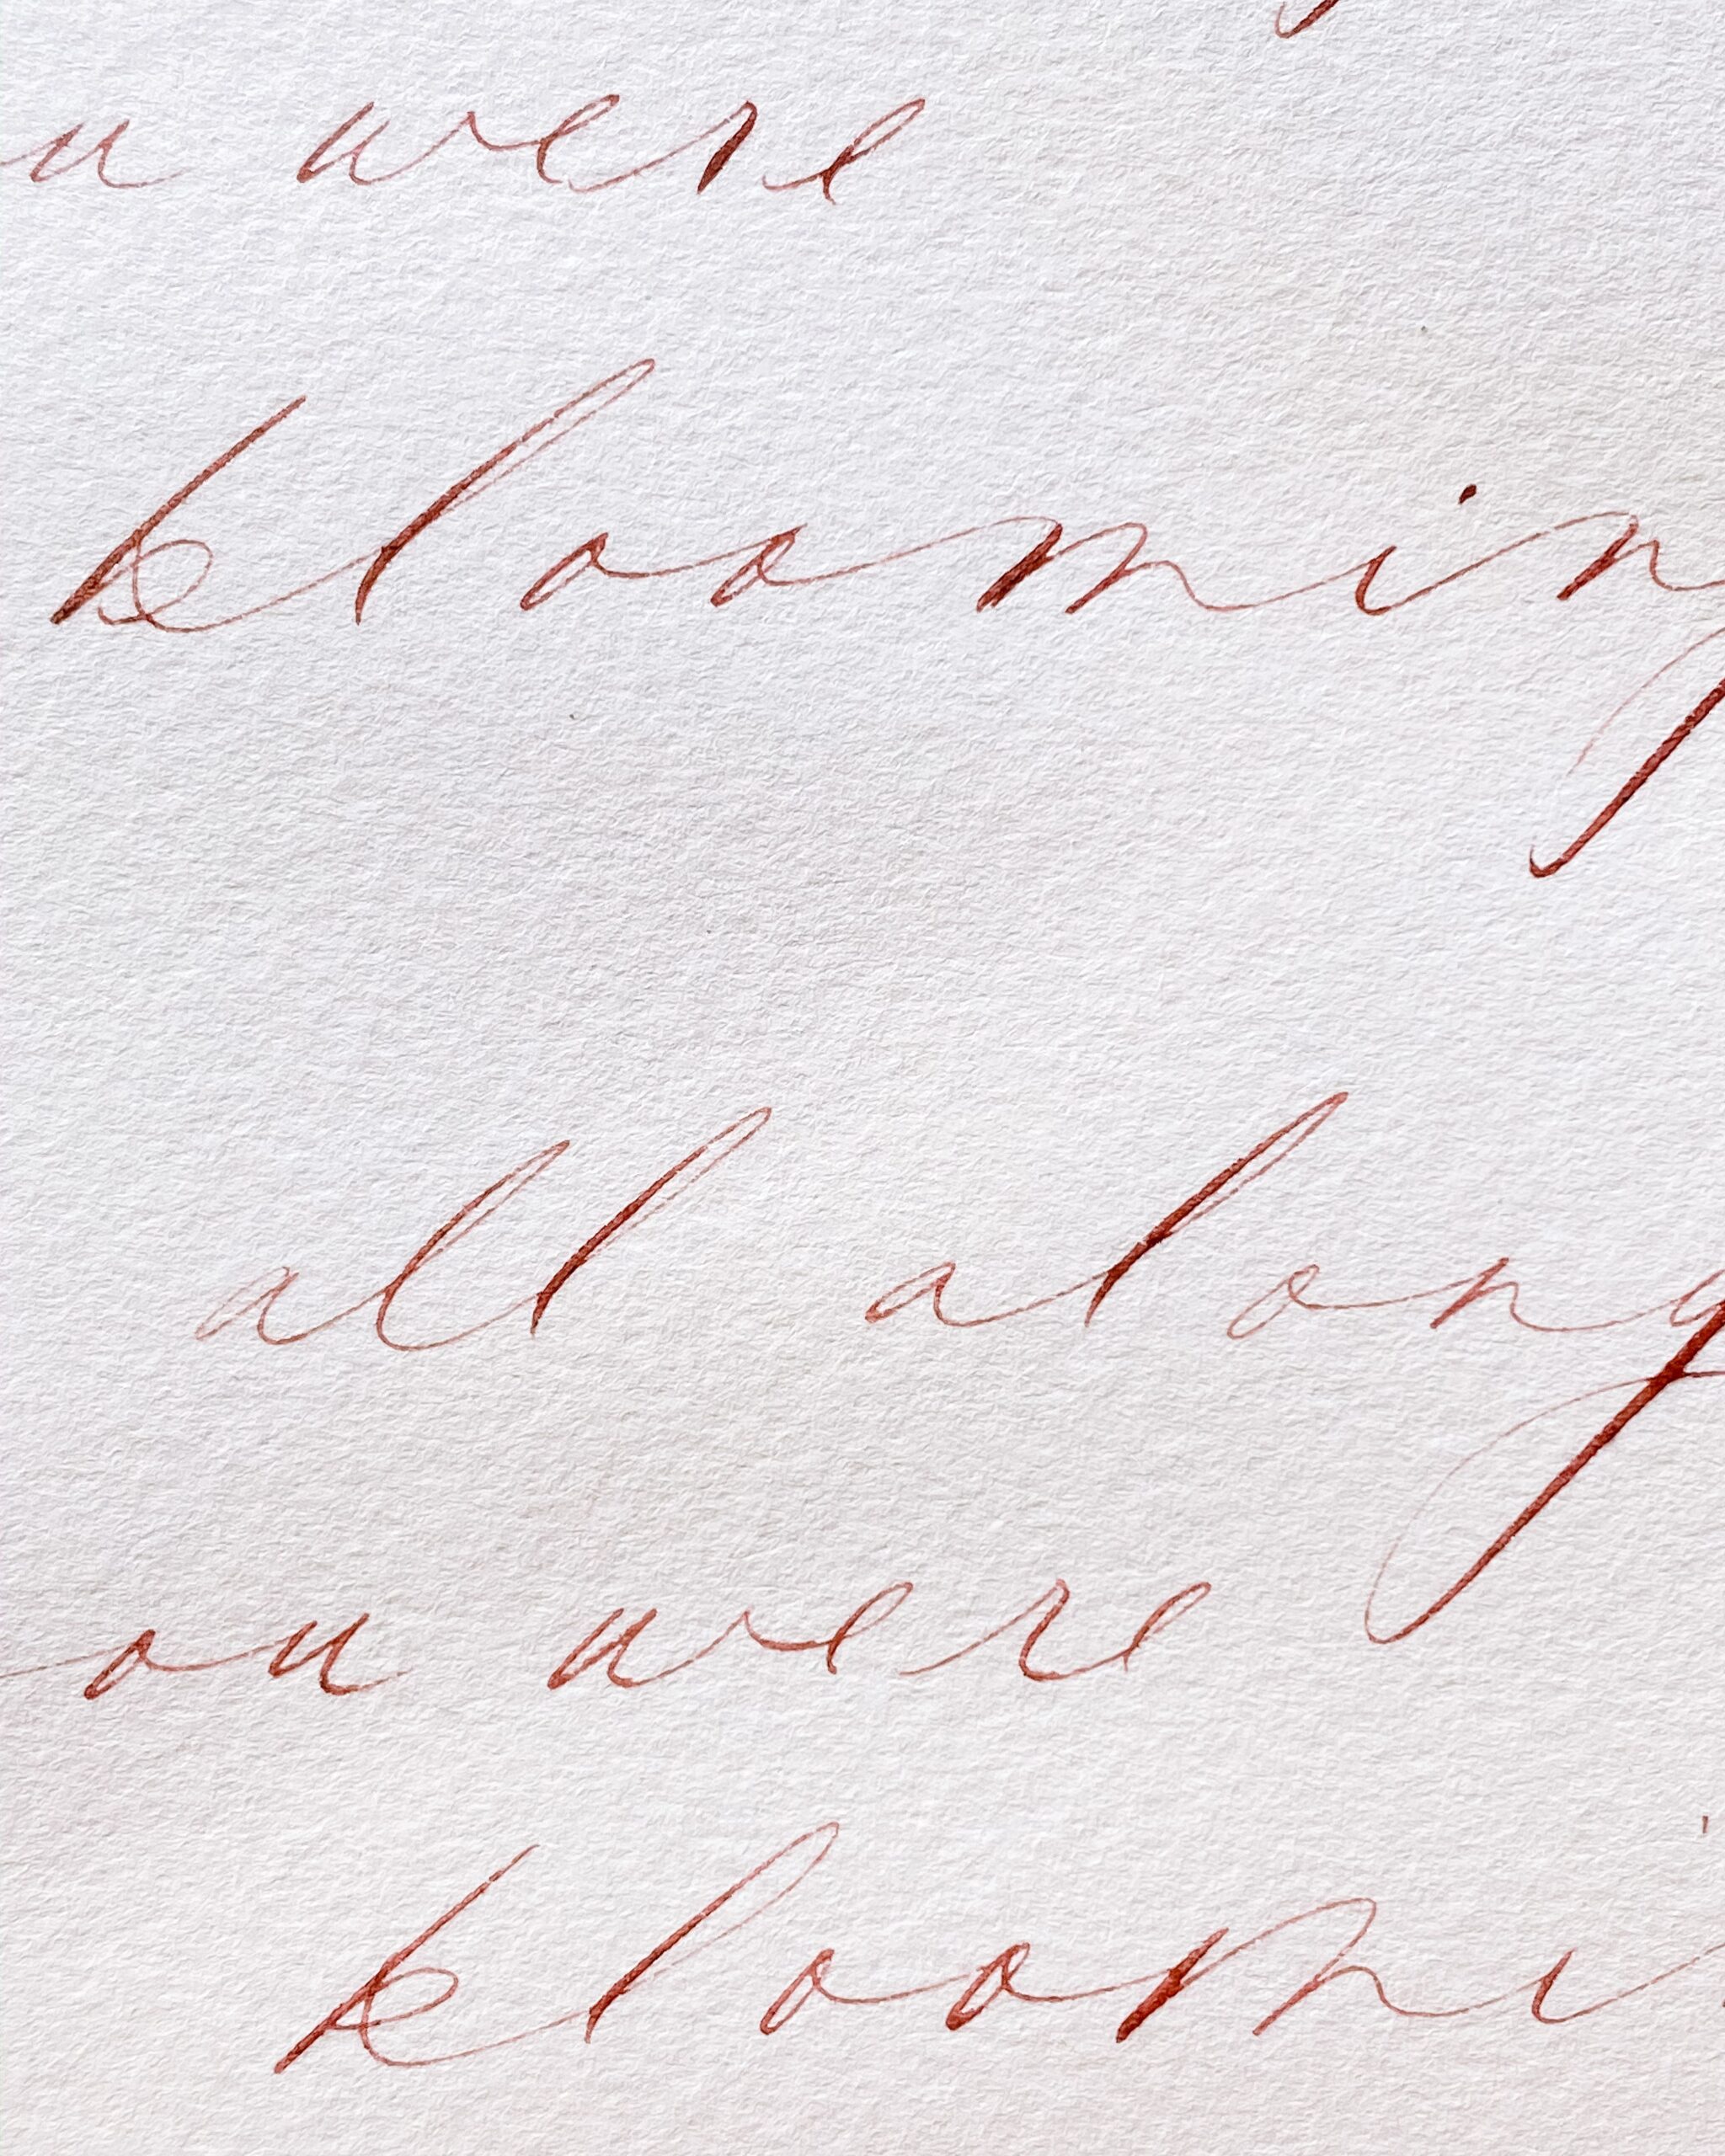 u were
blooming
all along
ou were
bloomi